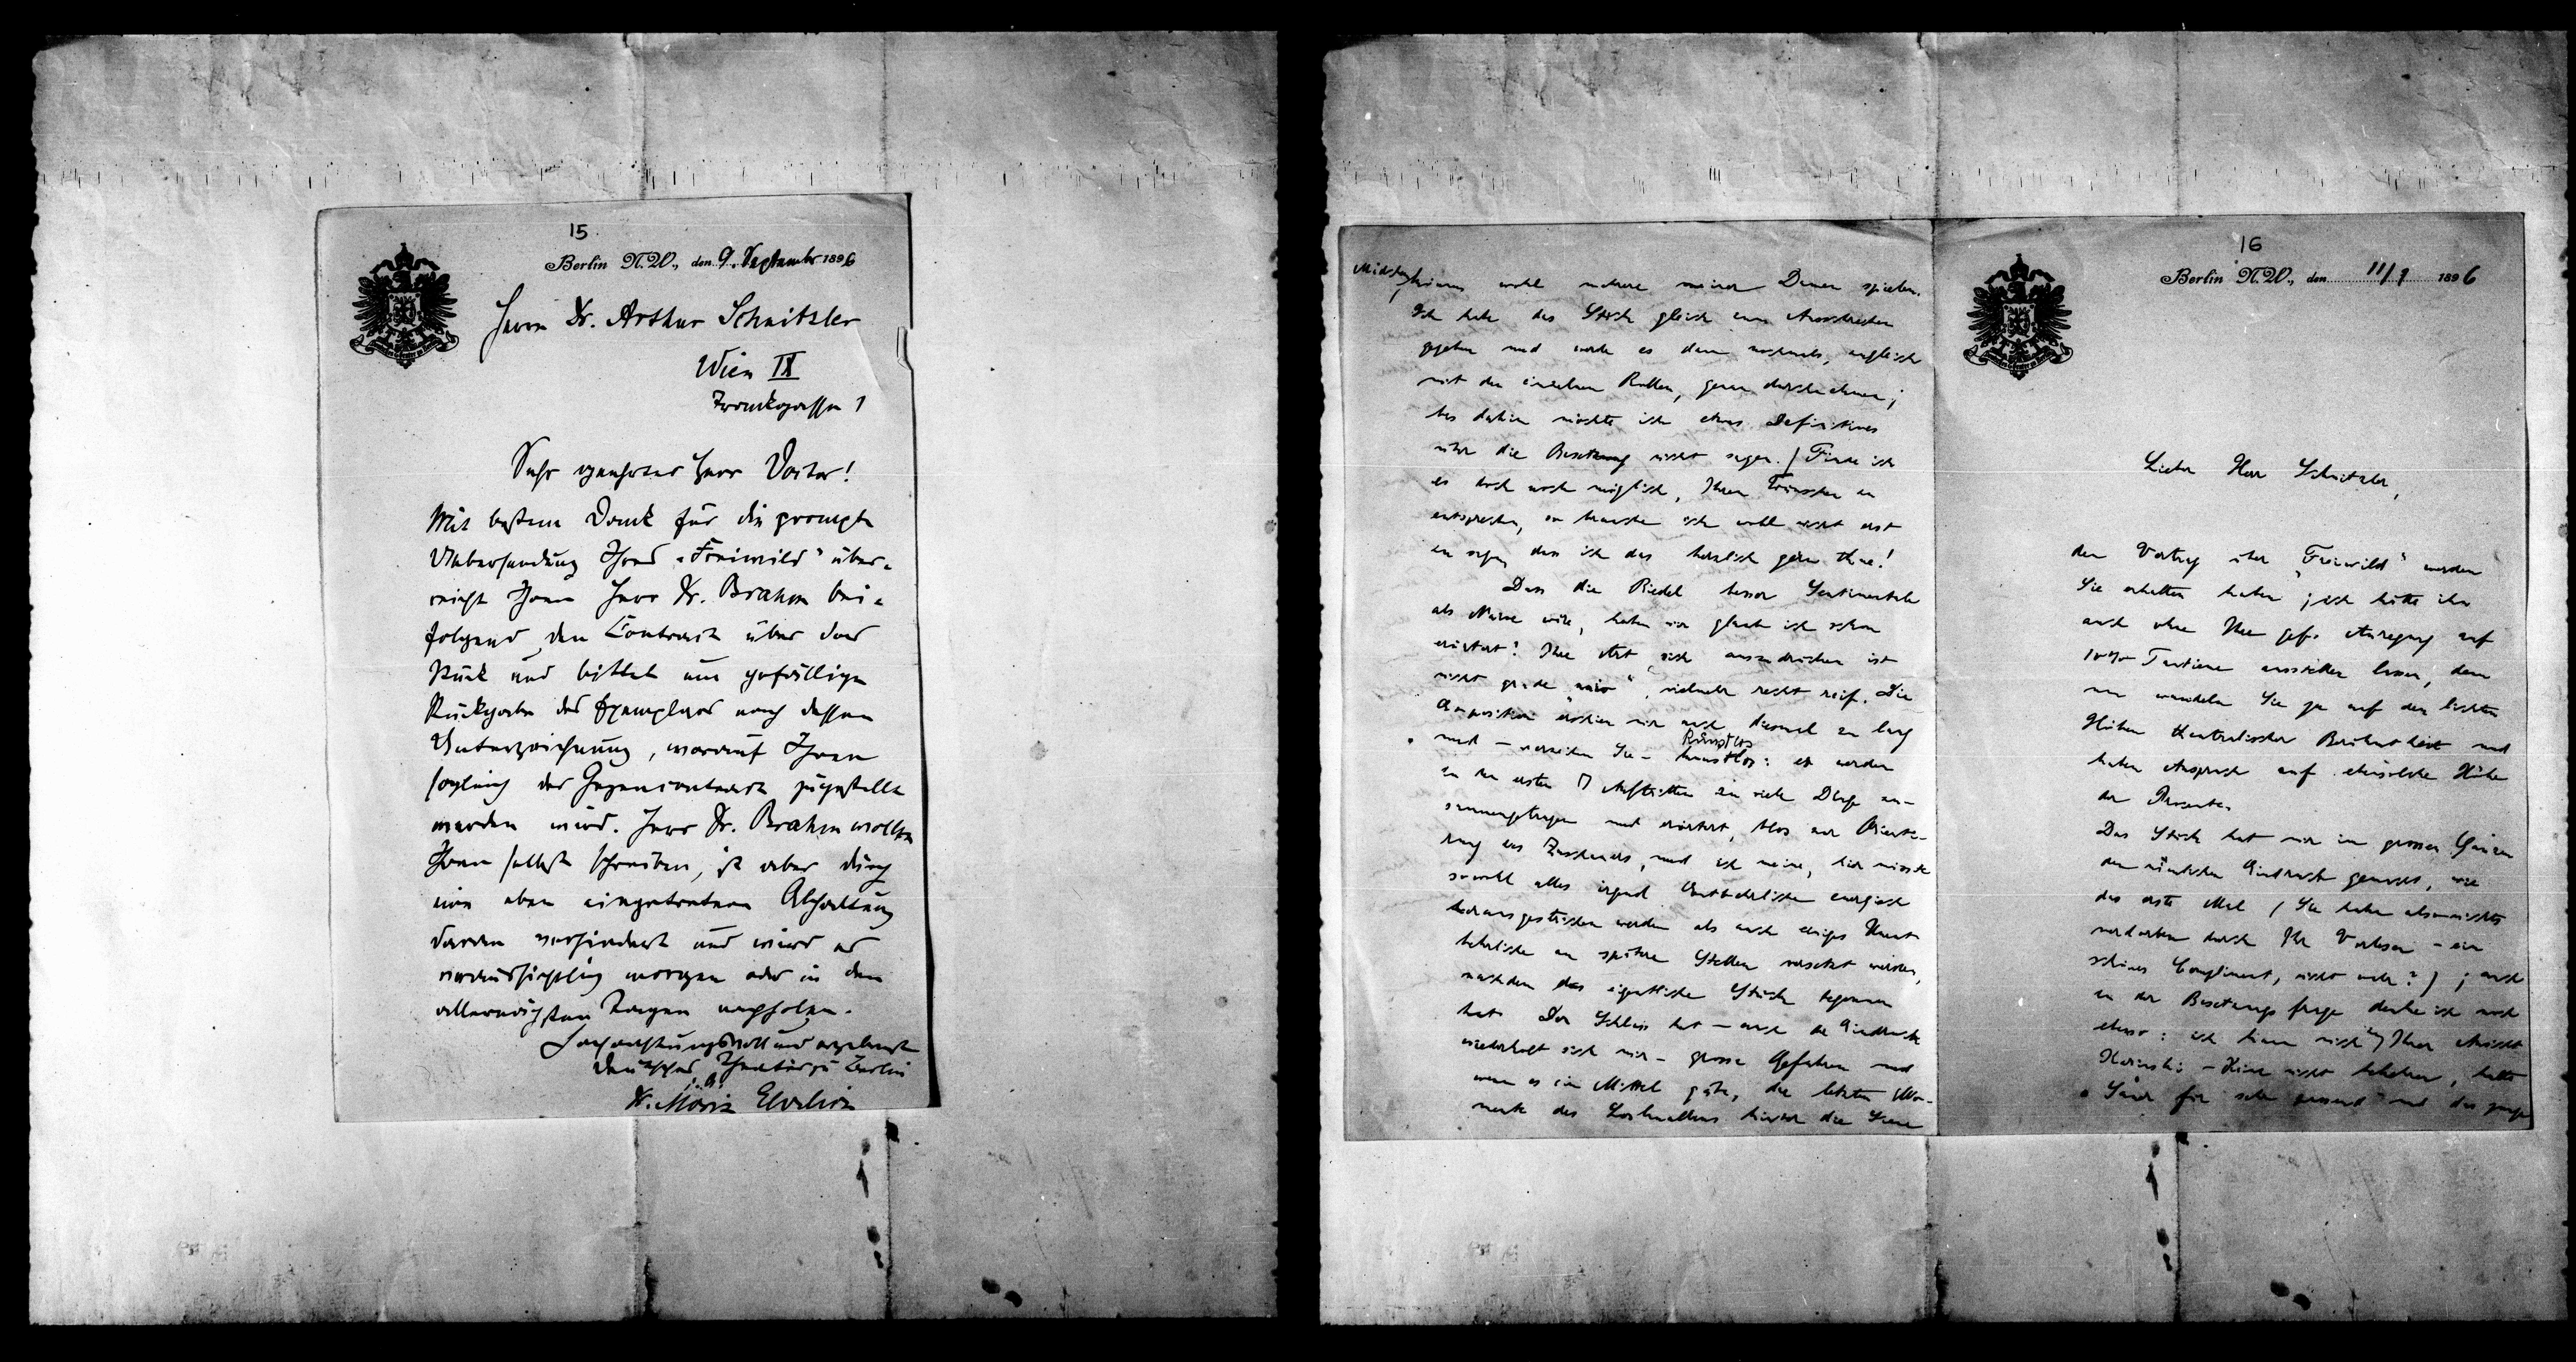 15
Berlin N.W., den 9. September 1896
Herrn Dr. Arthur Schnitzler
Wien IX
Frankgasse 1
Sehr geehrter Herr Doctor!
Mit bestem Dank für die prompte
Uebersendung Ihres „Freiwild“ über-
reicht Ihnen Herr Dr. Brahm bei-
folgend den Contract über das
Stück und bittet um gefällige
Rückgabe des Exemplars nach dessen
Unterzeichnung, worauf Ihnen
sogleich der Gegencontract zugestellt
werden wird. Herr Dr. Brahm wollte
Ihnen selbst schreiben, ist aber durch
eine eben eingetretene Abhaltung
daran verhindert und wird es
voraussichtlich morgen oder in den
allernächsten Tagen nachholen.
Hochachtungsvoll und ergebenst
Deutsches Theater zu Berlin
i. A.
Dr. Moriz Ehrlich
16
Berlin N.W., den 11/9 1896
Lieber Herr Schnitzler,
den Vertrag über „Freiwild“ werden
Sie erhalten haben; ich hätte ihn
auch ohne Ihre gefl. Anregung auf
10% Tantieme ausstellen lassen, denn
nun wandeln Sie ja auf den lichten
Höhen theatralischer Berühmtheit und
haben Anspruch auf ebensolche Höhe
der Prozente.
Das Stück hat mir im grossen Ganzen
den nämlichen Eindruck gemacht, wie
das erste Mal (Sie haben also nichts
verdorben durch Ihr Vorlesen – ein
schönes Compliment, nicht wahr?); auch
in der Besetzungsfrage denke ich noch
ebenso: ich kann mich Ihrer Ansicht
nicht bekehren, halte
für sehr passend und das junge
Mädchen können wohl mehrere meiner Damen spielen.
Ich habe das Stück gleich zum Ausschreiben
gegeben und werde es dann nochmals, zugleich
mit den einzelnen Rollen, genau durchnehmen;
bis dahin möchte ich etwas Definitives
über die Besetzung nicht sagen. Finde ich
es doch noch möglich, Ihren Wünschen zu
entsprechen, so brauche ich wohl nicht erst
zu sagen, dass ich das herzlich gern thue!
Dass die Riedel besser Sentimentale
als Naive wäre, haben wir glaub ich schon
erörtert? Ihre Art sich auszudrücken ist
nicht grade „naiv“, vielmehr recht reif. Die
Exposition erschien mir auch diesmal zu lang
und – verzeihen Sie – kunstlos: es werden
Kunstlos
in den ersten Auftritten zu viele Dinge zu-
sammengetragen und erörtert, blos zur Orientie-
rung des Zuschauers, und ich meine, hier müsste
sowohl alles irgend Entbehrliche energisch
herausgestrichen werden als auch einiges Unent-
behrliche an spätere Stellen versetzt werden,
nachdem das eigentliche Stück begonnen
hat. Der Schluss hat – auch der Eindruck
wiederholt sich mir – grosse Gefahren und
wenn es ein Mittel gäbe, die letzten Mo-
mente des Losknallens hinter die Scene